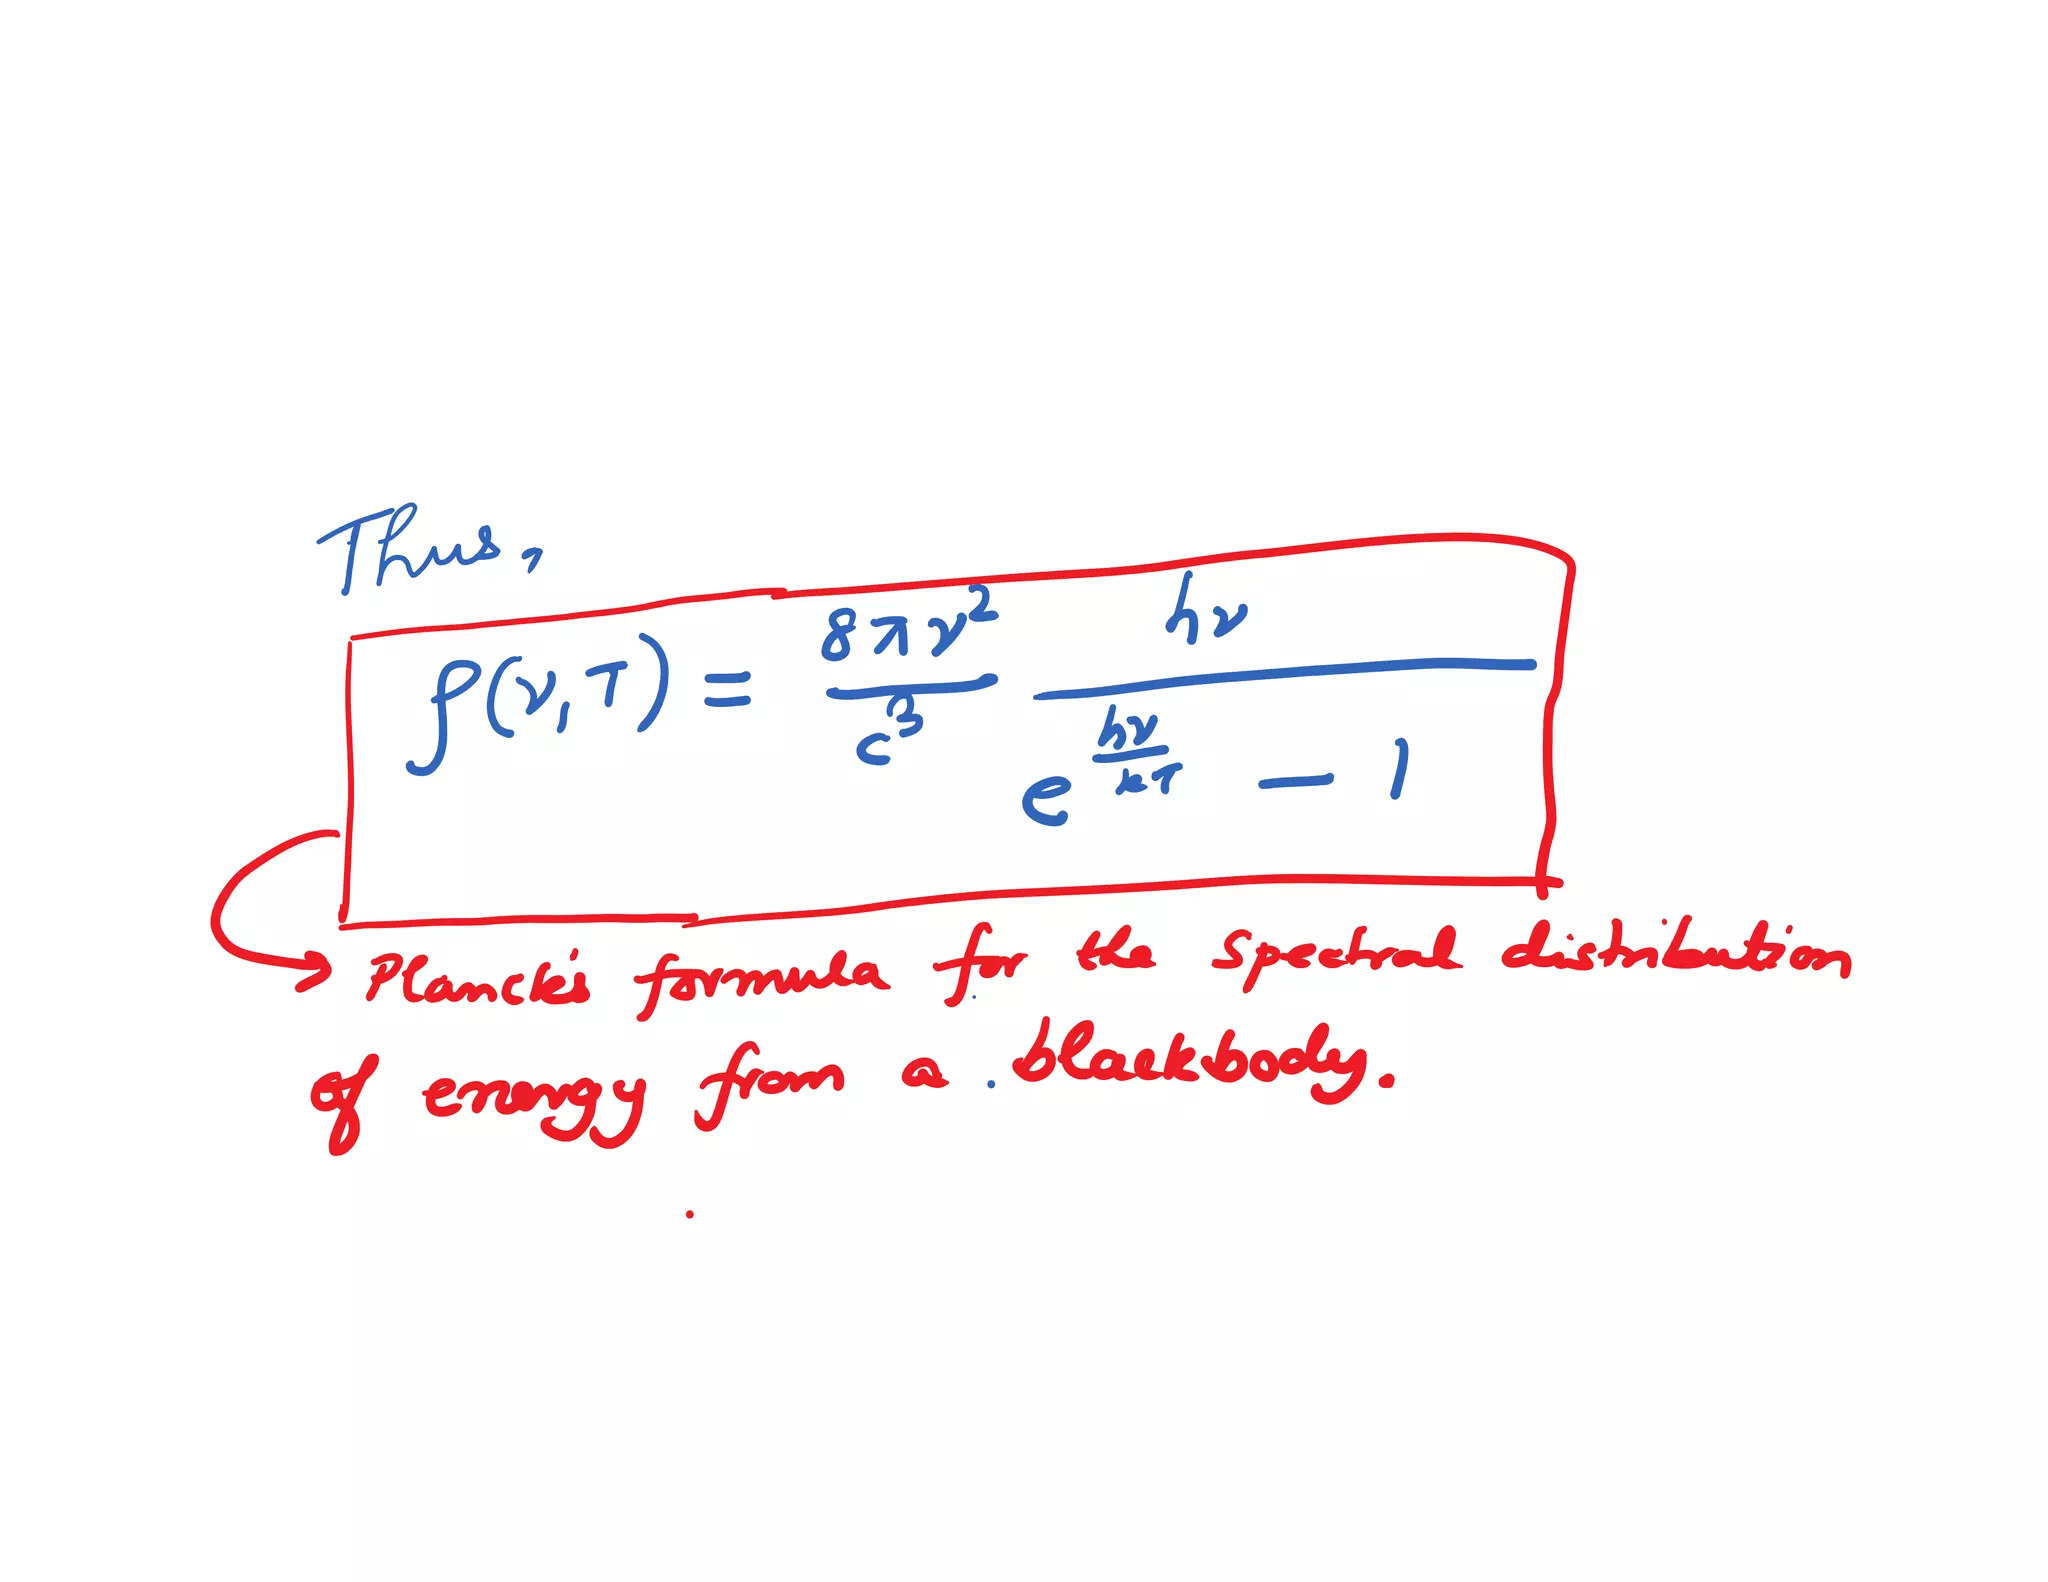 Thus,
ρ(ν,T) = 8πν²/c³ hν/(e^(hν/kT) − 1)
→ Planck's formula for the spectral distribution
of energy from a blackbody.